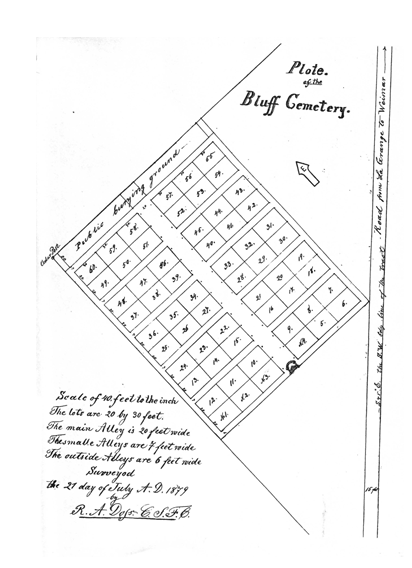 Plote.
of the
Bluff Cemetery.
Public burying ground
Road from La Grange to Weimar
55.
56. 54.
57. 53.
52.
58.
59. 51.
60. 50.
49.
43.
44. 42.
45. 41.
40.
48. 47. 38.
37. 39.
31.
32. 30.
33. 29.
28.
36. 35. 34.
25. 26. 27.
19.
20. 18.
21. 17.
16.
24. 23. 22.
13. 14. 15.
7.
8. 6.
9. 5.
12. 11. 10.
61. 62. 63.
Scale of 40 feet to the inch
The lots are 20 by 30 feet.
The main Alley is 20 feet wide
The smalle Alleys are 7 feet wide
The outside Alleys are 6 feet wide
Surveyed
the 21 day of July A. D. 1879
by
R. A.